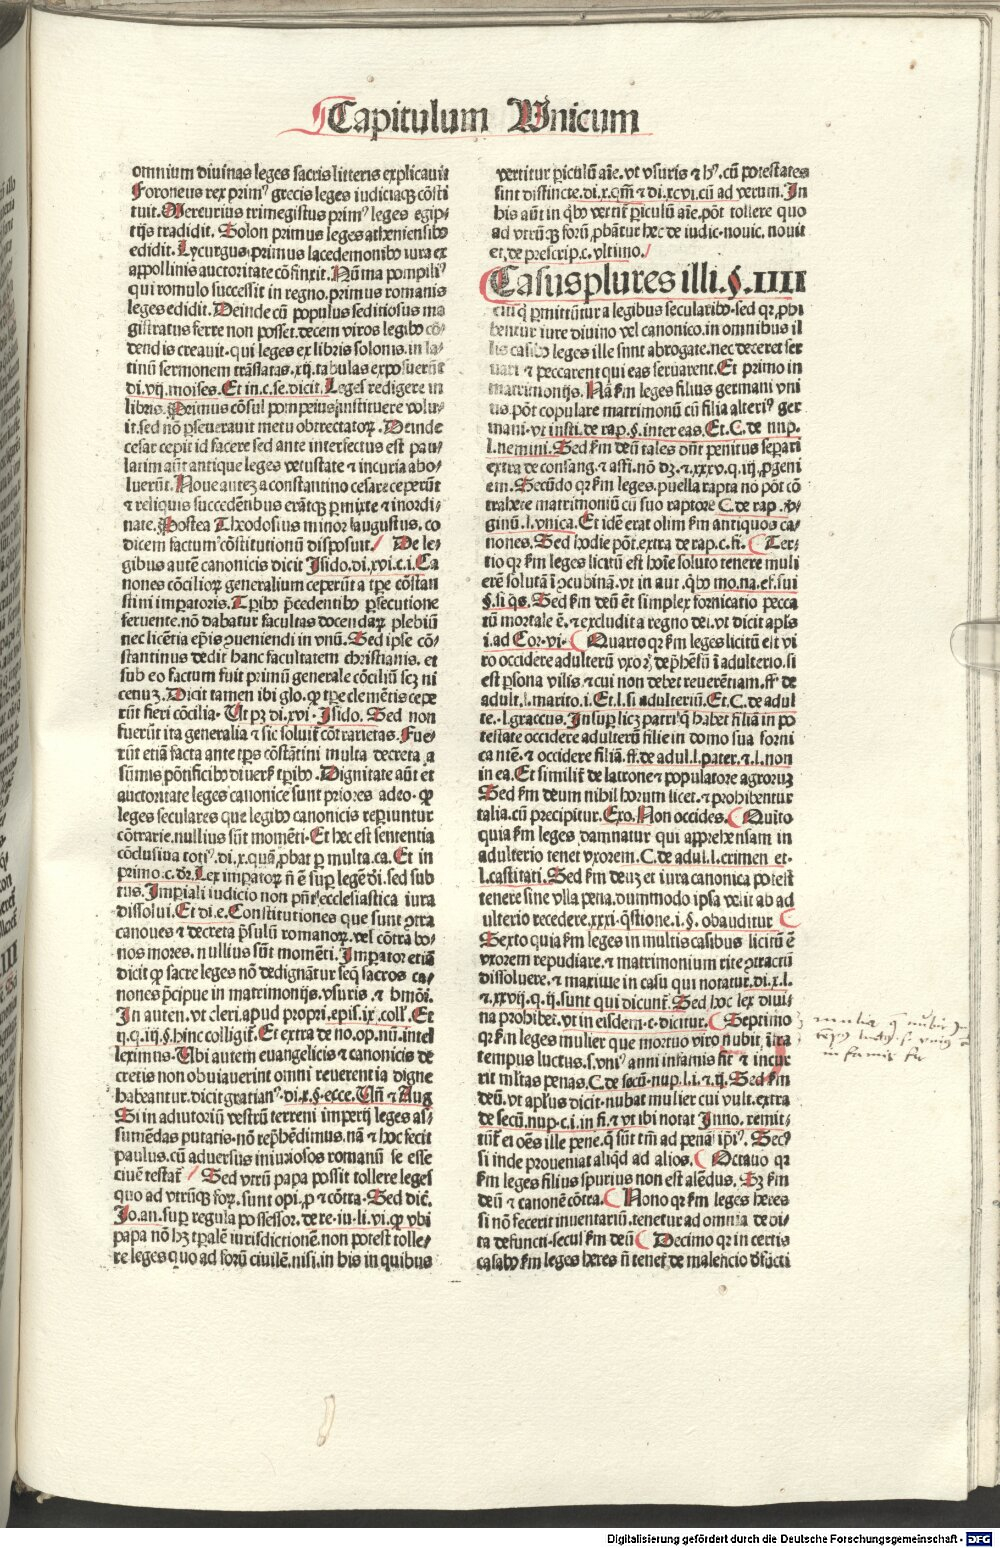 Capitulum Unicum
omnium diuinas leges sacris litteris explicauit
Foroneus rex primꝰ grecis leges iudiciaqꝫ cōsti
tuit. Mercurius trimegistus primꝰ leges egip⸗
tijs tradidit. Solon primus leges atheniensibꝰ
edidit. Lycurgus primus lacedemonibꝰ iura ex
appollinis auctoritate cōfinxit. Nūma pompiliꝰ
qui romulo successit in regno. primus romanis
leges edidit. Deinde cū populus seditiosus ma
gistratus ferre non posset. decem viros legibꝰ cō⸗
dendis creauit. qui leges ex libris solonis. in la⸗
tinū sermonem trāslatas. xij. tabulas exposuerūt
di. vij. moises. Et in. c. se. dicit. Leges redigere in
libris. Primus cōsul pompeius instituere volu⸗
it. sed nō ꝑseuerauit metu obtrectatoꝝ. Deinde
cesar cepit id facere sed ante interfectus est pau⸗
latim aūt antique leges vetustate ⁊ incuria abo⸗
luerūt. Noue autez a constantino cesare ceperūt
⁊ reliquis succedētibus erātqꝫ ꝑmixte ⁊ inordi⸗
nate. Postea Theodosius minor augustus. co
dicem factum cōstitutionū disposuit. De le⸗
gibus autē canonicis dicit Isido. di. xvi. c. i. Ca
nones cōcilioꝝ generalium ceperūt a tp̄e cōstan
stini imꝑatoris. Tꝑibꝰ p̄cedentibꝰ ꝑsecutione
feruente. nō dabatur facultas docendaꝝ plebiū
nec licētia ep̄is ꝯueniendi in vnū. Sed ipse cō⸗
stantinus dedit hanc facultatem christianis. et
sub eo factum fuit primū generale cōciliū scꝫ ni
cenuꝫ. Dicit tamen ibi glo. ꝙ tp̄e clemētis cepe
rūt fieri cōcilia. Ut pꝫ di. xvi. Isido. Sed non
fuerūt ita generalia ⁊ sic soluit̄ cōtrarietas. Fue⸗
rūt etiā facta ante tp̄s cōstātini multa decreta a
sūmis pōtificibꝰ diuers̄ tꝑibꝰ. Dignitate aūt et
auctoritate leges canonice sunt priores adeo. ꝙ
leges seculares que legibꝰ canonicis reꝑiuntur
cōtrarie. nullius sūt momēti. Et hec est sententia
cōclusiua totiꝰ. di. x. quā ꝓbat ꝑ multa. ca. Et in
primo. c. dr̄. Lex imꝑatoꝝ n̄ ē suꝑ legē dei. sed sub
tus. Imꝑiali iudicio non pn̄t ecclesiastica iura
dissolui. Et di. e. Constitutiones que sunt ꝯtra
canones ⁊ decreta p̄sulū romanoꝝ. vel cōtra bo⸗
nos mores. nullius sūt momēti. Imꝑator etiā
dicit ꝙ sacre leges nō dedignātur seq̄ sacros ca⸗
nones p̄cipue in matrimonijs. vsuris. ⁊ hmōi.
In auten. vt cleri. apud propri. epis. ix. coll̄. Et
ij. q. iij. §. hinc colligit̄. Et extra de no. op. nū. intel
leximus. Ubi autem euangelicis ⁊ canonicis de
cretis non obuiauerint omni reuerentia digne
habeantur. dicit gratianꝰ. di. x. §. ecce. Un̄ ⁊ Aug
Si in adiutoriū vestrū terreni imperij leges as⸗
sumēdas putatis. nō rep̄hēdimus. nā ⁊ hoc fecit
paulus. cū aduersus iniuriosos romanū se esse
ciuē testat̄. Sed vtrū papa possit tollere leges
quo ad vtrūqꝫ foꝝ. sunt opi. ꝓ ⁊ cōtra. Sed dic̄.
Jo. an. suꝑ regula possessor. de re. iu. li. vi. ꝙ vbi
papa nō hꝫ tꝑalē iurisdictionē. non potest tolle⸗
re leges quo ad forū ciuilē. nisi. in his in quibus
vertitur ꝑiculū aīe. vt vsuris ⁊ hꝰ. cū potestates
sint distincte. di. x. qm̄ ⁊ di. xcvi. cū ad verum. In
his aūt in qͥbꝰ vertit̄ ꝑiculū aīe. pōt tollere quo
ad vtrūqꝫ forū. ꝓbātur hec de iudic. nouic. nouit
et de prescrip. c. vltimo.
Casus plures illi. §. IIII
ꝑmittūtur a legibus secularibꝰ. sed qꝛ ꝓhi
bentur iure diuino vel canonico. in omnibus il
lis casibꝰ leges ille sunt abrogate. nec deceret ser
uari ⁊ peccarent qui eas seruarent. Et primo in
matrimonijs. Nā ẜm leges filius germani vni
us. pōt copulare matrimoniū cū filia alteriꝰ ger
mani. vt insti. de rap. §. inter eas. Et. C. de nup.
l. nemini. Sed ẜm deū tales dn̄t penitus seꝑari
extra de consang. ⁊ affi. nō dꝫ. ⁊. xxxv. q. iij. ꝓgeni
em. Secūdo qꝛ ẜm leges. puella rapta nō pōt cō
trahere matrimoniū cū suo raptore C. de rap. v̓⸗
ginū. l. vnica. Et idē erat olim ẜm antiquos ca⸗
nones. Sed hodie pōt. extra de rap. c. fi. Ter⸗
tio qꝛ ẜm leges licitū est hoīe soluto tenere muli
erē solutā ī ꝯcubinā. vt in aut. qͥbꝰ mo. na. ef. sui
§. si qͥs. Sed ẜm deū ēt simplex fornicatio pecca
tū mortale ē. ⁊ excludit a regno dei. vt dicit apl̄s
i. ad Cor. vi. Quarto qꝛ ẜm leges licitū est vi
ro occidere adulterū vxorꝭ dep̄hēsū ī adulterio. si
est ꝑsona vilis. ⁊ cui non debet reuerētiam. ff. de
adult. l. marito. i. Et. l. si adulteriū. Et. C. de adul
te. l. graccus. Insuꝑ licꝫ patri qͥ habet filiā in po
testate occidere adulterū filie in domo sua forni
cantē. ⁊ occidere filiā. ff. de adul. l. pater. ⁊. l. non
in ea. Et similit̄ de latrone ⁊ populatore agroruꝫ
Sed ẜm deum nihil horum licet. ⁊ prohibentur
talia. cū precipitur. Exo. Non occides. Quīto
quia ẜm leges damnatur qui apprehensam in
adulterio tenet vxorem. C. de adul. l. crimen et.
l. castitati. Sed ẜm deuꝫ et iura canonica potest
tenere sine vlla pena. dummodo ipsa velit ab ad
ulterio recedere. xxxi. q̄stione. i. §. obauditur
Sexto quia ẜm leges in multis casibus licitū ē
vxorem repudiare. ⁊ matrimonium rite ꝯtractū
dissoluere. ⁊ maxime in casu qui notatur. di. x. l.
⁊. xxvij. q. ij. sunt qui dicunt̄. Sed hoc lex diui⸗
na prohibet. vt in eisdem. c. dicitur. Septimo
qꝛ ẜm leges mulier que mortuo viro nubit ītra
tempus luctus. s. vniꝰ anni infamis fit̄ ⁊ incur
rit mĺtas penas. C. de secū. nup. l. i. ⁊. ij. Sed ẜm
deū. vt apl̄us dicit. nubat mulier cui vult. extra
de secū. nup. c. i. in fi. ⁊ vt ibi notat Inno. remit⸗
tūt̄ ei oēs ille pene. q̄ sūt tm̄ ad penā ip̄iꝰ. Secꝰ
si inde proueniat aliqͥd ad alios. Octauo qꝛ
ẜm leges filius spurius non est alēdus. Sꝫ ẜm
deū ⁊ canonē cōtra. Nono qꝛ ẜm leges heres
si nō fecerit inuentariū. tenetur ad omnia debi⸗
ta defuncti. secus ẜm deū. Decimo qꝛ in certis
casibꝰ ẜm leges heres n̄ tenet̄ de maleficio dfūcti
Digitalisierung gefördert durch die Deutsche Forschungsgemeinschaft - DFG